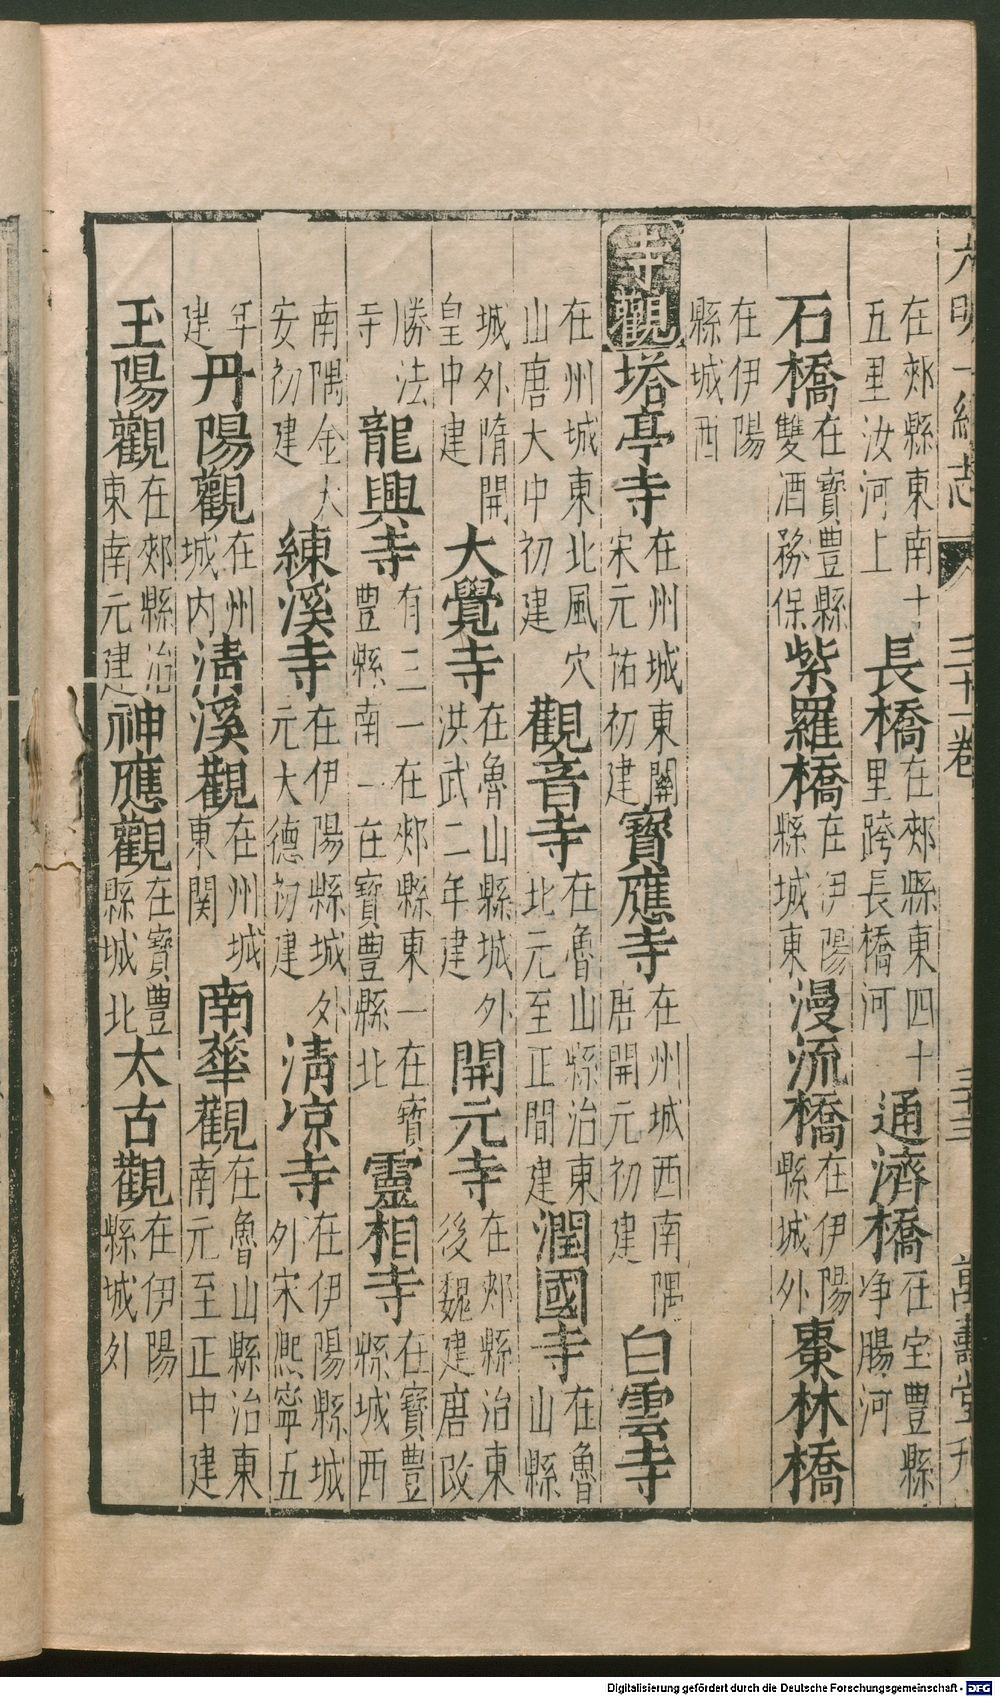 大明一統志 三十一卷 三十三 萬壽堂刊
在郟縣東南十五里汝河上 長橋 在郟縣東四十里跨長橋河 通濟橋 在宝豊縣净腸河
石橋 在寶豊縣雙酒務保 紫羅橋 在伊陽縣城東 漫流橋 在伊陽縣城外 棗林橋
在伊陽縣城西
寺觀 塔亭寺 在州城東關宋元祐初建 寶應寺 在州城西南隅唐開元初建 白雲寺
在州城東北風穴山唐大中初建 觀音寺 在魯山縣治東北元至正間建 潤國寺 在魯山縣
城外隋開皇中建 大覺寺 在魯山縣城外洪武二年建 開元寺 在郟縣治東後魏建唐改
勝法寺 龍興寺 有三一在郟縣東一在寶豊縣南一在寶豊縣北 靈相寺 在寶豊縣城西
南隅金大安初建 練溪寺 在伊陽縣城外元大德初建 清凉寺 在伊陽縣城外宋熙寧五
年建 丹陽觀 在州城内 清溪觀 在州城東関 南華觀 在魯山縣治東南元至正中建
玉陽觀 在郟縣治東南元建 神應觀 在寶豊縣城北 太古觀 在伊陽縣城外
Digitalisierung gefördert durch die Deutsche Forschungsgemeinschaft - DFG